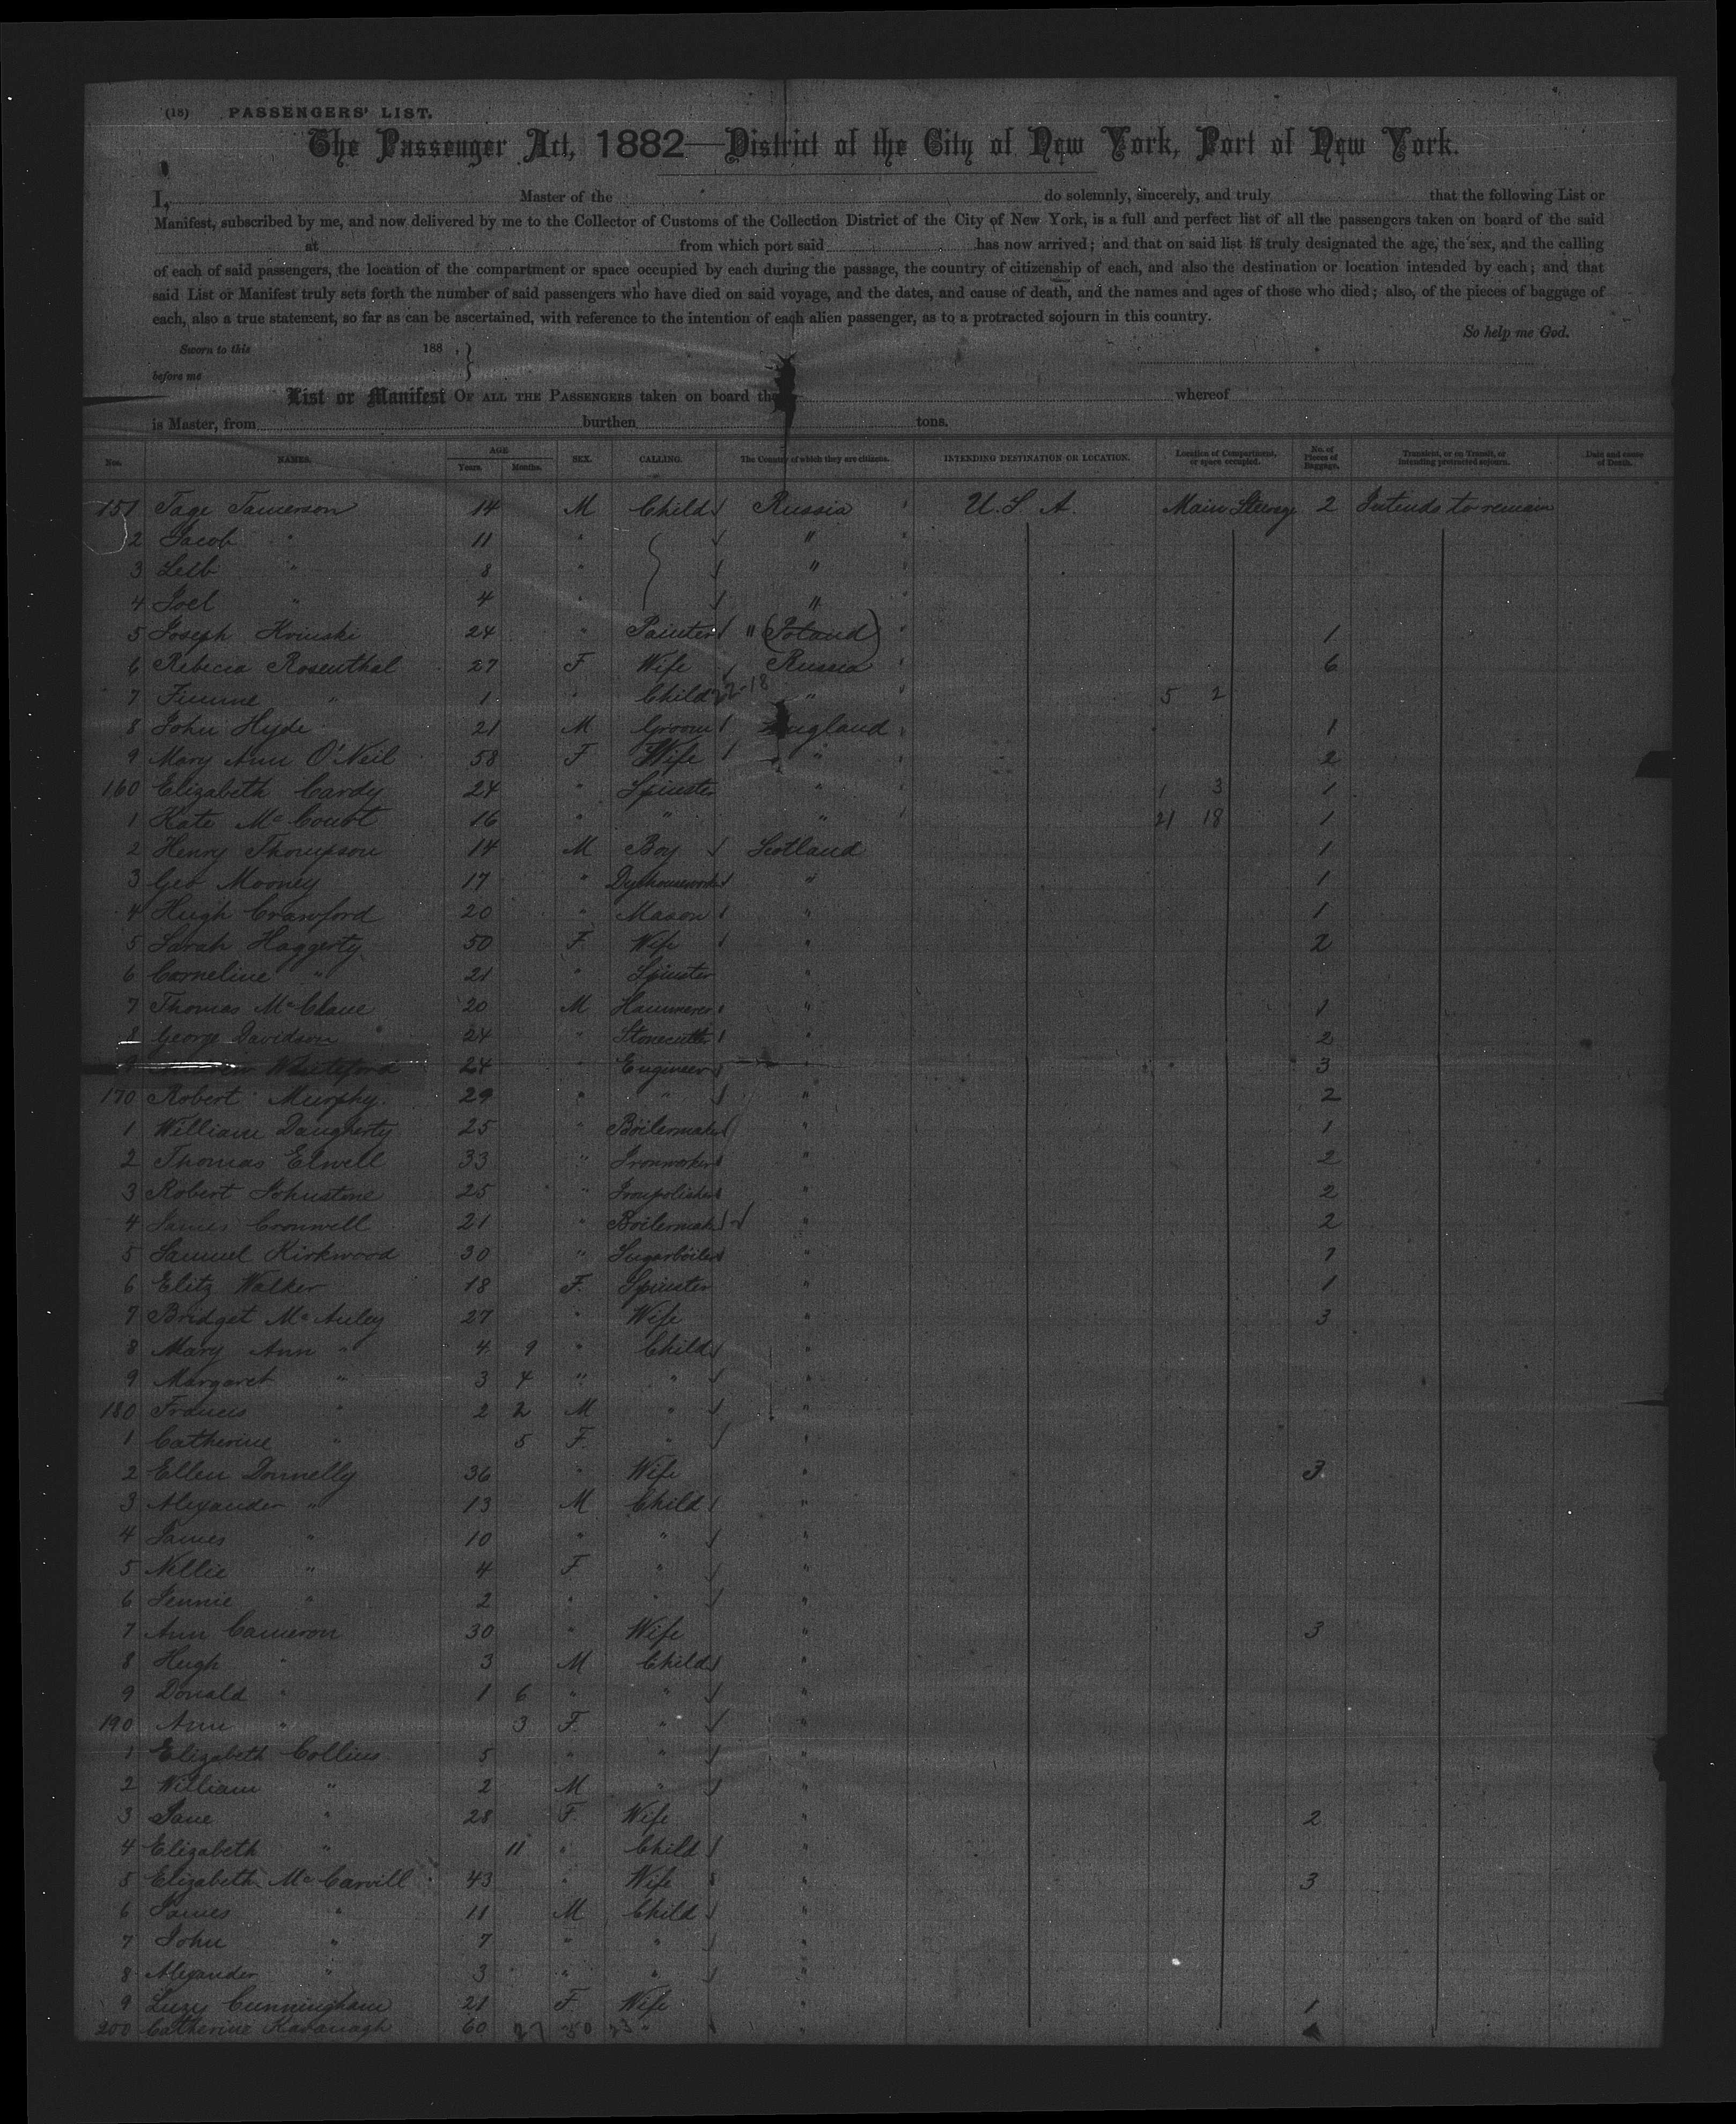 (18) PASSENGERS' LIST.
The Passenger Act, 1882—District of the City of New York, Port of New York.
I, Master of the do solemnly, sincerely, and truly that the following List or
Manifest, subscribed by me, and now delivered by me to the Collector of Customs of the Collection District of the City of New York, is a full and perfect list of all the passengers taken on board of the said
at from which port said has now arrived; and that on said list is truly designated the age, the sex, and the calling
of each of said passengers, the location of the compartment or space occupied by each during the passage, the country of citizenship of each, and also the destination or location intended by each; and that
said List or Manifest truly sets forth the number of said passengers who have died on said voyage, and the dates, and cause of death, and the names and ages of those who died; also, of the pieces of baggage of
each, also a true statement, so far as can be ascertained, with reference to the intention of each alien passenger, as to a protracted sojourn in this country.
So help me God.
Sworn to this 188 . }
before me
List or Manifest OF ALL THE PASSENGERS taken on board the whereof
is Master, from burthen tons.
Nos. NAMES. AGE Years. Months. SEX. CALLING. The Country of which they are citizens. INTENDING DESTINATION OR LOCATION. Location of Compartment, or space occupied. No. of Pieces of Baggage. Transient, or on Transit, or intending protracted sojourn. Date and cause of Death.
151 Tage Tamerson 14 M Child Russia U.S.A. Main Steerage 2 Intends to remain
2 Jacob " 11 " "
3 Leib " 8 " "
4 Joel " 4 " "
5 Joseph Kvinski 24 " Painter " (Poland) 1
6 Rebecca Rosenthal 27 F Wife Russia 6
7 " 1 " Child 22-18 " 5 2
8 John Hyde 21 M Groom England 1
9 Mary Ann O'Neil 58 F Wife " 2
160 Elizabeth Cardy 24 " Spinster " 1 3 1
1 Kate McCourt 16 " " " 21 18 1
2 Henry Thompson 14 M Boy Scotland 1
3 Geo Mooney 17 " " 1
4 Hugh Crawford 20 " Mason " 1
5 Sarah Haggerty 50 F Wife " 2
6 Corneline " 21 " Spinster "
7 Thomas McClane 20 M Hammerer " 1
8 George Davidson 24 " Stonecutter " 2
9 Whiteford 24 " Engineer 3
170 Robert Murphy 29 " " " 2
1 William Daugherty 25 " Boilermaker " 1
2 Thomas Elwell 33 " Ironworker " 2
3 Robert Johnstone 25 " Ironpolisher " 2
4 James Cromwell 21 " Boilermaker " 2
5 Samuel Kirkwood 30 " Sugarboiler " 1
6 Elitz Walker 18 F. Spinster " 1
7 Bridget McAuley 27 " Wife " 3
8 Mary Ann " 4 9 " Child "
9 Margaret " 3 4 " " "
180 Francis " 2 2 M " "
1 Catherine " 5 F. " "
2 Ellen Donnelly 36 " Wife " 3
3 Alexander " 13 M Child "
4 James " 10 " " "
5 Nellie " 4 F " "
6 Jennie " 2 " " "
7 Ann Cameron 30 " Wife " 3
8 Hugh " 3 M Child "
9 Donald " 1 6 " " "
190 Ann " 3 F. " "
1 Elizabeth Collins 5 " " "
2 William " 2 M " "
3 Jane " 28 F. Wife " 2
4 Elizabeth " 11 " Child "
5 Elizabeth McCarvill 43 " Wife " 3
6 James " 11 M Child "
7 John " 7 " " "
8 Alexander " 3 " " "
9 Luzy Cunningham 21 F. Wife " 1
200 Catherine Kavanagh 60 " "